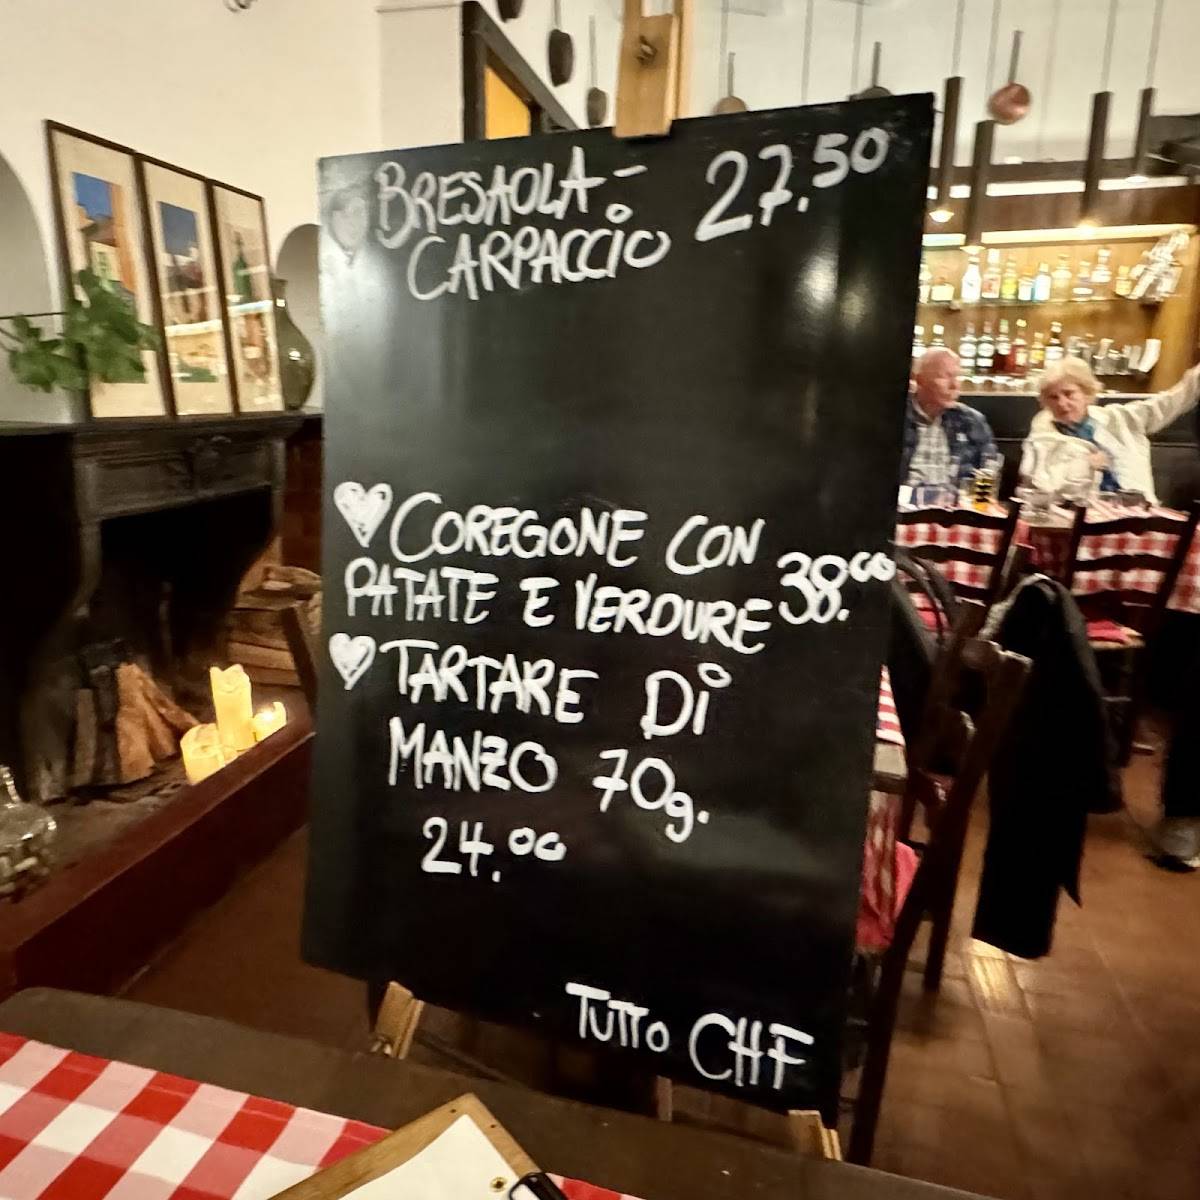 BRESAOLA- 27.50
CARPACCIO
COREGONE CON
PATATE E VERDURE 38.00
TARTARE DI
MANZO 70g.
24.00
TUTTO CHF